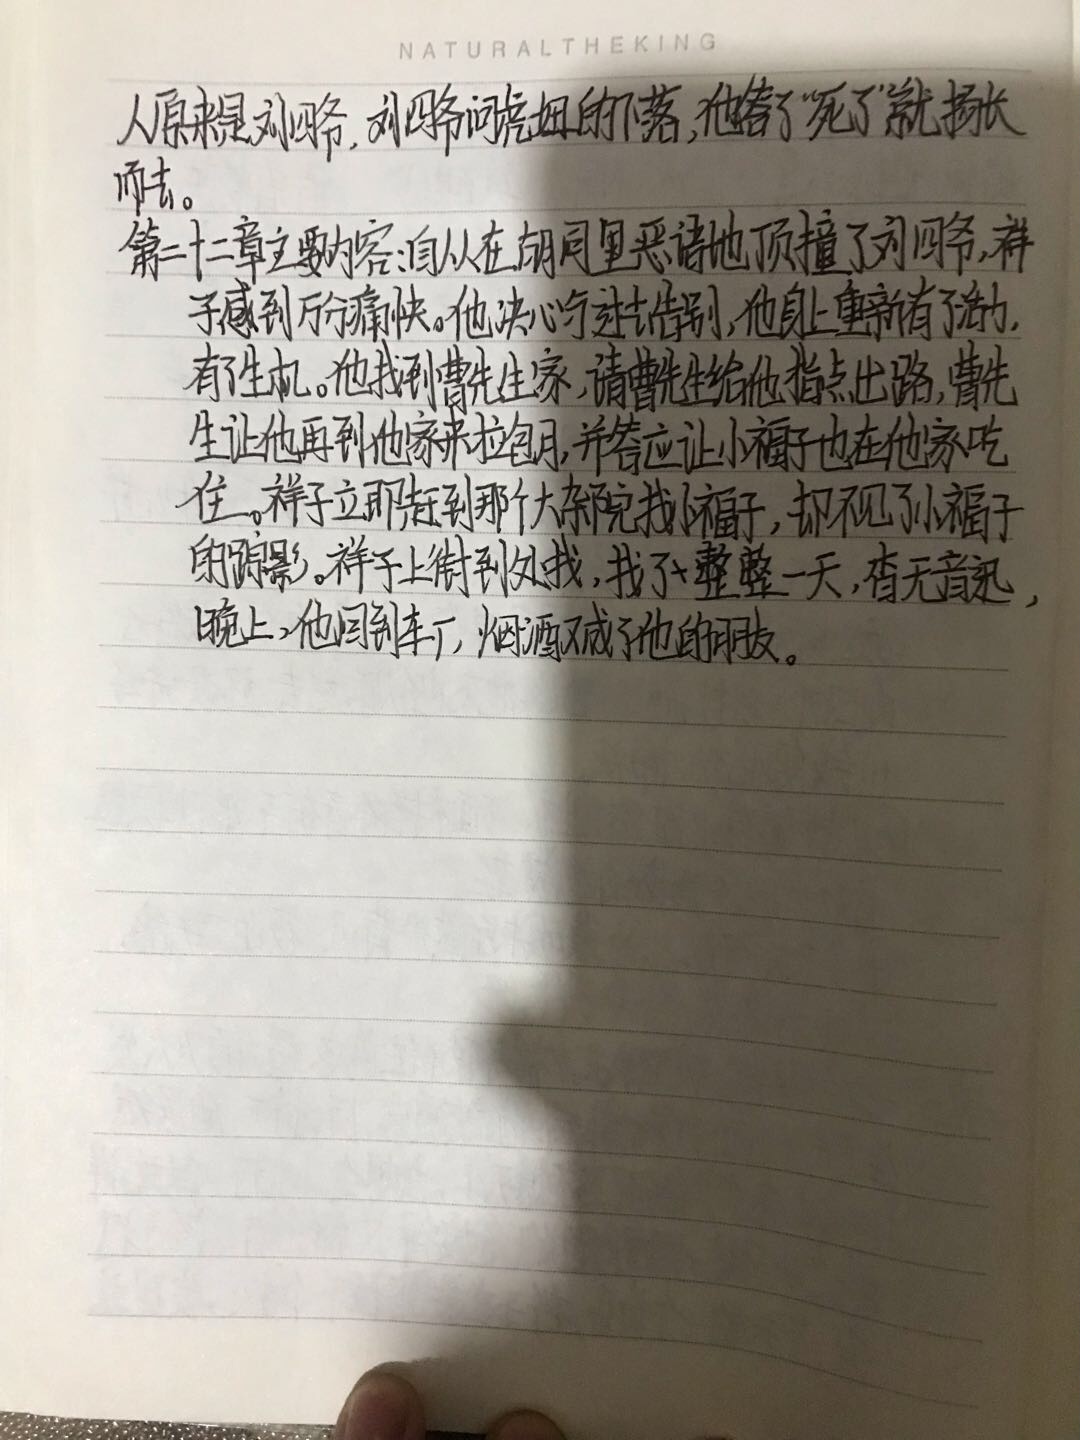 NATURALTHEKING
人原来是刘四爷，刘四爷问虎妞的下落，他答了“死了”就扬长
而去。
第二十二章主要内容：自从在胡同里恶语地顶撞了刘四爷，祥
子感到万分痛快。他决心与过去告别，他身上重新有了活力，
有了生机。他找到曹先生家，请曹先生给他指点出路，曹先
生让他再到他家来拉包月，并答应让小福子也在他家吃
住。祥子立即赶到那个大杂院找小福子，却不见了小福子
的踪影。祥子上街到处找，找了整整一天，杳无音迅，
晚上，他回到车厂，烟酒又成了他的朋友。